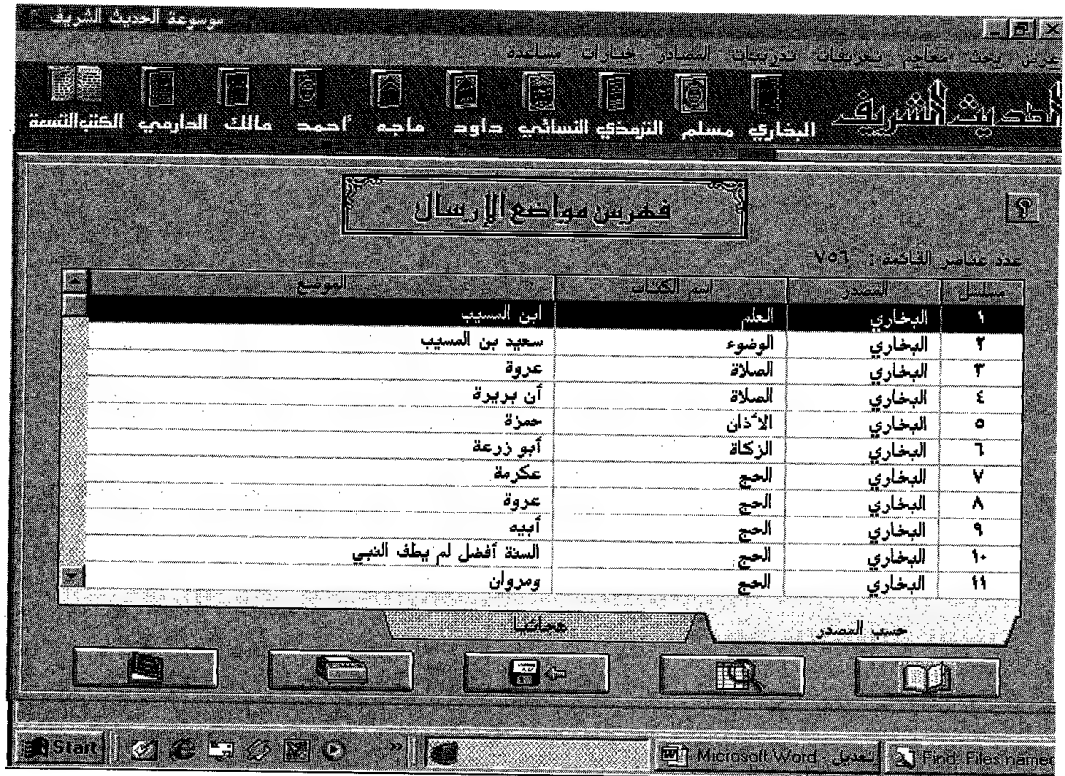 موسوعة الحديث الشريف
عرض بحث معاجم تخريجات تدريبات المصادر خيارات مساعدة
الحديث الشريف
البخاري مسلم الترمذي النسائي داود ماجه أحمد مالك الدارمي الكتب التسعة
فهرس مواضع الإرسال
عدد عناصر القائمة : ٧٥٦
مسلسل المصدر اسم الكتاب الموضع
١ البخاري العلم ابن المسيب
٢ البخاري الوضوء سعيد بن المسيب
٣ البخاري الصلاة عروة
٤ البخاري الصلاة أن بريرة
٥ البخاري الأذان حمزة
٦ البخاري الزكاة أبو زرعة
٧ البخاري الحج عكرمة
٨ البخاري الحج عروة
٩ البخاري الحج أبيه
١٠ البخاري الحج السنة أفضل لم يطف النبي
١١ البخاري الحج ومروان
حسب المصدر هجائيا
Start » Microsoft Word - تعديل Find: Files named